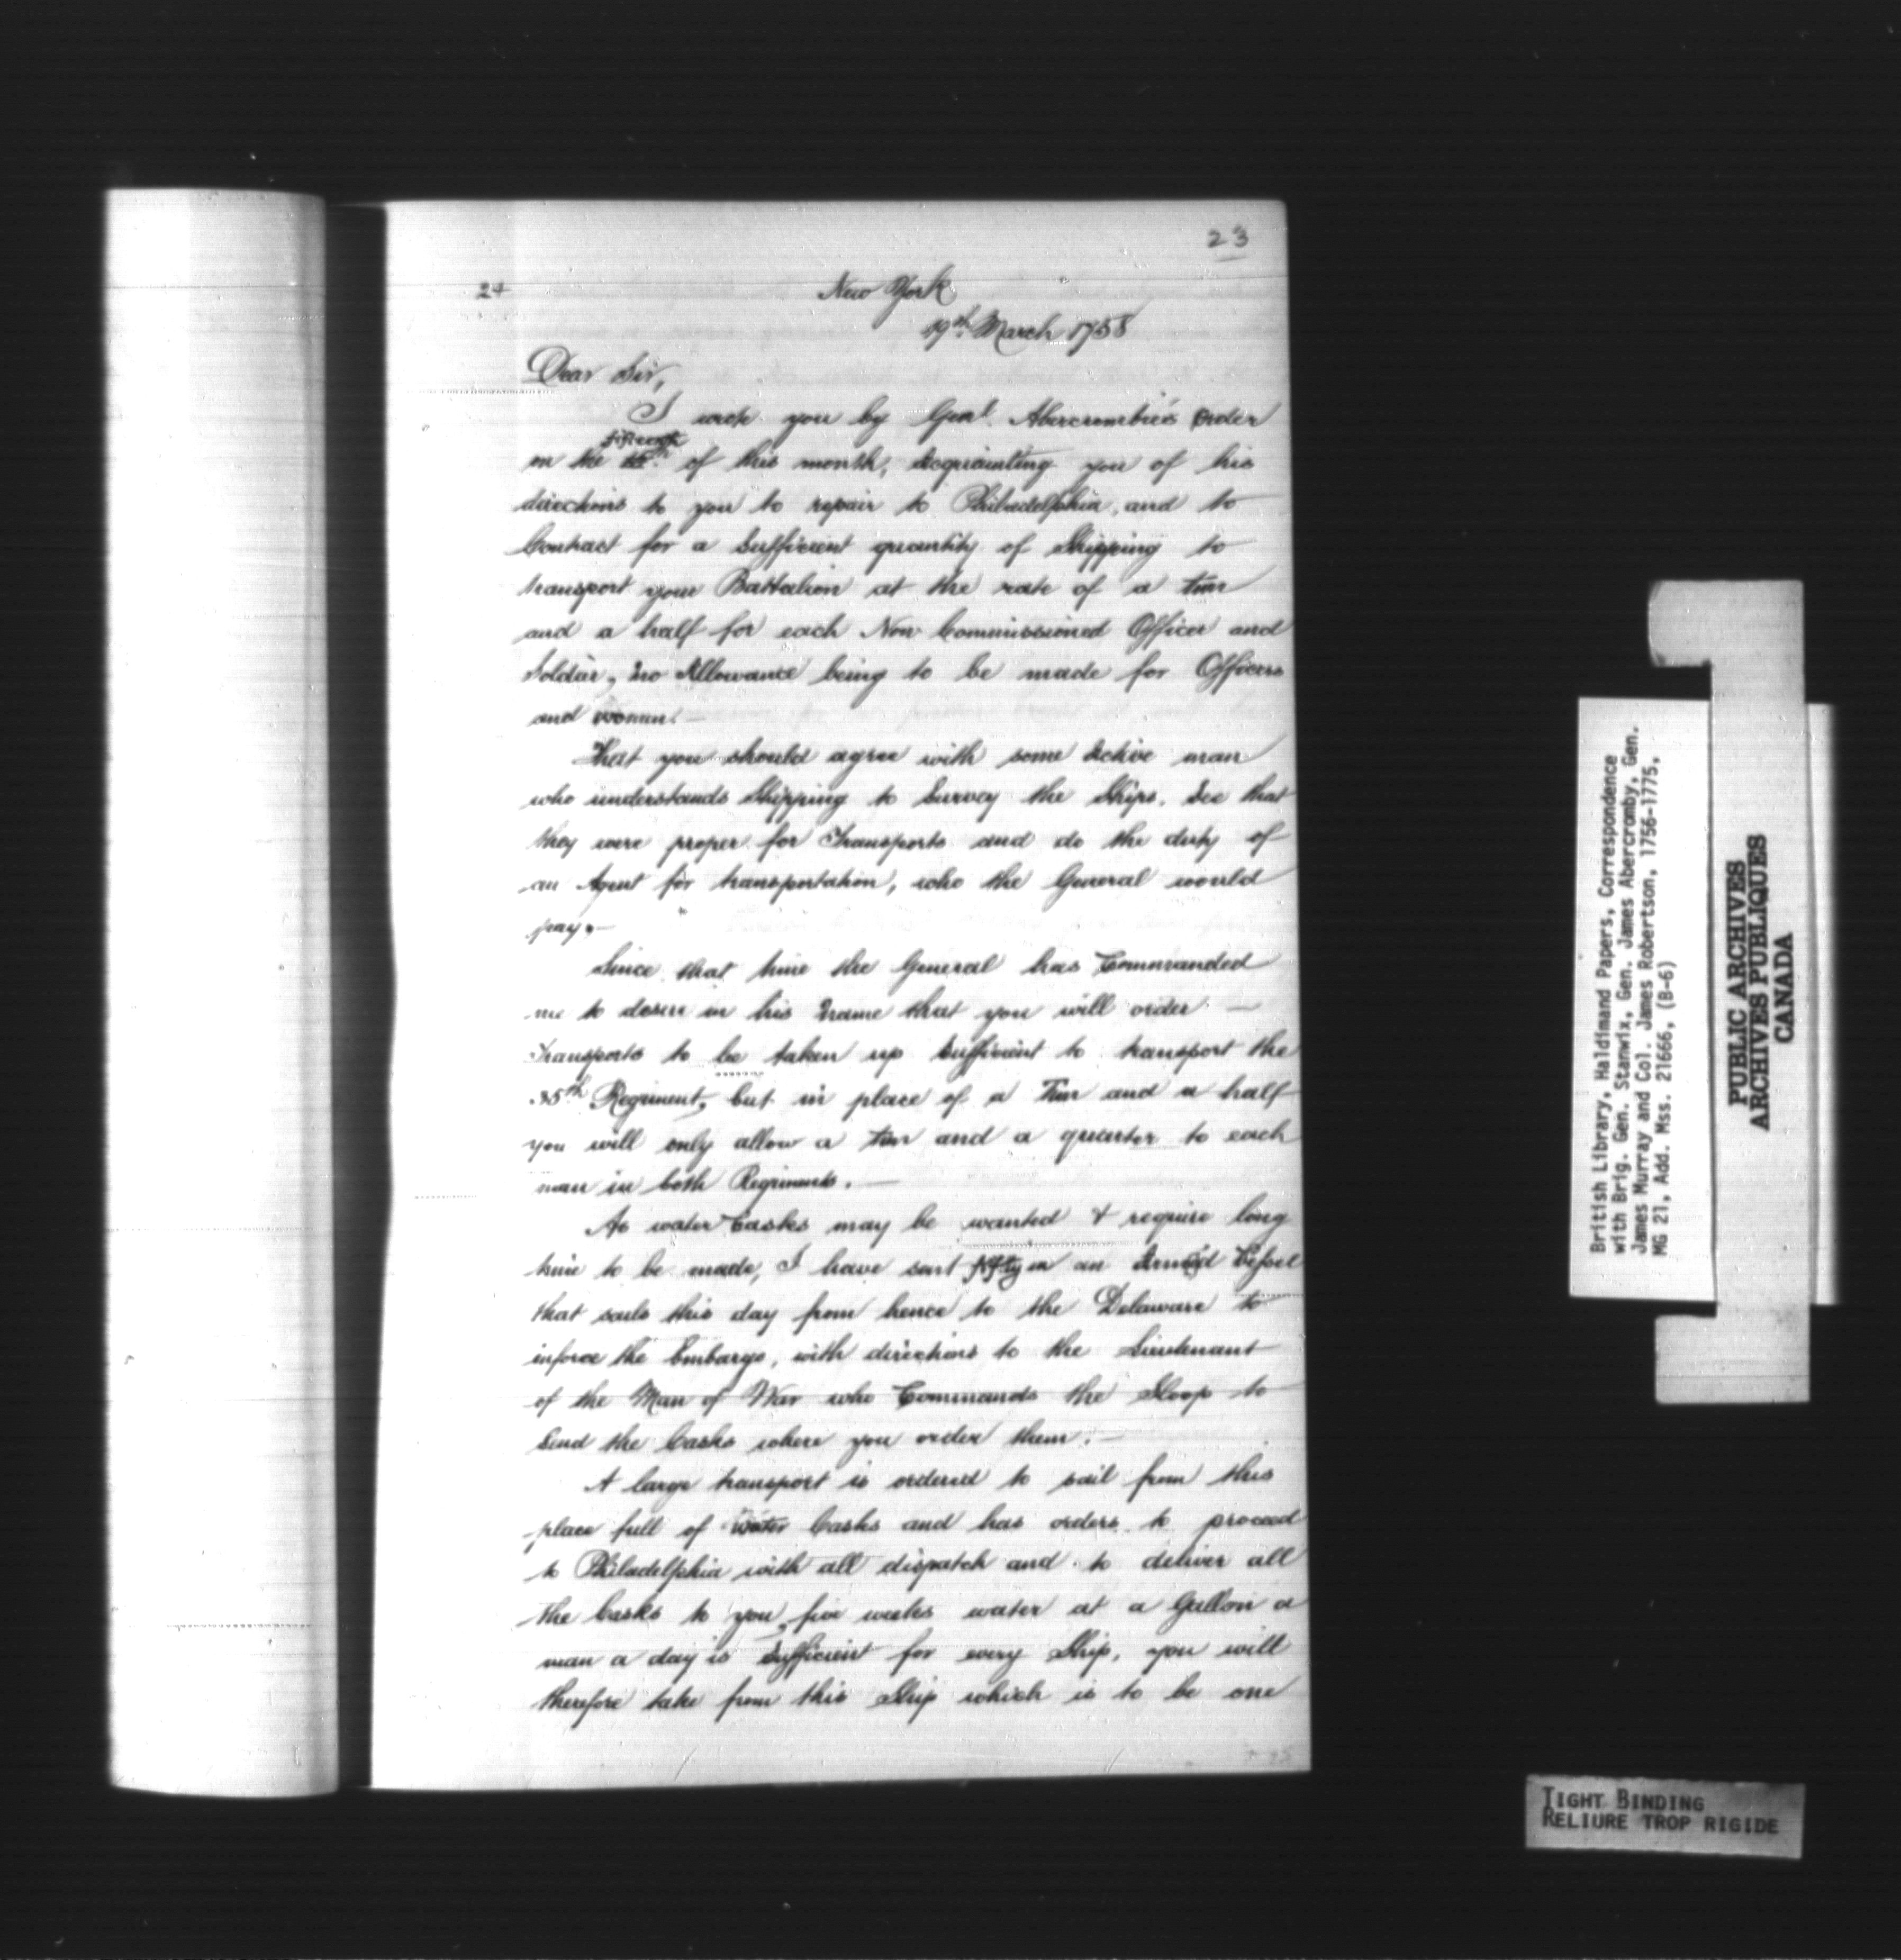 23
24
New York
19th March 1758
Dear Sir,
I wrote you by Genl. Abercrombie's Order
fifteenth
on the of this month, Acquainting you of his
directions to you to repair to Philadelphia, and to
Contract for a Sufficient quantity of Shipping to
transport your Battalion at the rate of a tun
and a half for each Non Commissioned Officer and
Soldier, no Allowance being to be made for Officers
and women.—
That you should agree with some Active man
who understands Shipping to Survey the Ships, See that
they were proper for Transports and do the duty of
an Agent for transportation, who the General would
pay.—
Since that time the General has Commanded
me to desire in his Name that you will order —
Transports to be taken up Sufficient to transport the
35th Regiment, but in place of a Tun and a half
you will only allow a tun and a quarter to each
man in both Regiments.—
As water Casks may be wanted & require long
time to be made, I have sent fifty in an Armed Vessel
that sails this day from hence to the Delaware to
inforce the Embargo, with directions to the Lieutenant
of the Man of War who Commands the Sloop to
Send the Casks where you order them.—
A large transport is ordered to sail from this
place full of water Casks and has orders to proceed
to Philadelphia with all dispatch and to deliver all
the Casks to you, five weeks water at a Gallon a
man a day is Sufficient for every Ship, you will
therefore take from this Ship which is to be one
British Library, Haldimand Papers, Correspondence
with Brig. Gen. Stanwix, Gen. James Abercromby, Gen.
James Murray and Col. James Robertson, 1756-1775,
MG 21, Add. Mss. 21666, (B-6)
PUBLIC ARCHIVES
ARCHIVES PUBLIQUES
CANADA
TIGHT BINDING
RELIURE TROP RIGIDE